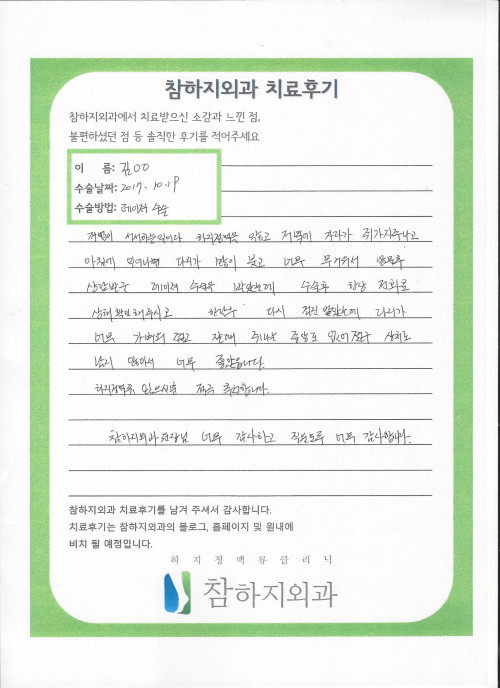 참하지외과 치료후기
참하지외과에서 치료받으신 소감과 느낀 점,
불편하셨던 점 등 솔직한 후기를 적어주세요
이 름: 김OO
수술날짜: 2017. 10. 19
수술방법: 레이저 수술
서서하는일이라 하지정맥을 앓고 저녁에 자다가 쥐가자주나고
아침에 일어나면 다리가 많이 붓고 너무 무거워서
상담받구 레이저 수술을 받았는데 수술후 항상 전화로
상태 확인 해주시고 한달후 다시 검진 받았는데 다리가
너무 가벼워 졌고 잘때 쥐나는 증상도 상처도
남지 않아서 너무 좋았습니다.
하지정맥류 있으신분 적극 추천합니다.
참하지외과 원장님 너무 감사하고 직원분들 너무 감사합니다.
참하지외과 치료후기를 남겨 주셔서 감사합니다.
치료후기는 참하지외과의 블로그, 홈페이지 및 원내에
비치 될 예정입니다.
하지정맥류클리닉
참하지외과